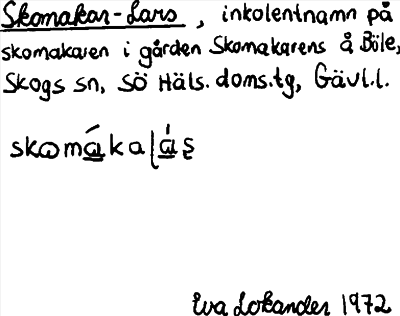 Skomakar-Lars, inkolentnamn på
skomakaren i gården Skomakarens å Böle,
Skogs sn, Sö Häls. doms.tg, Gävl.l.
Eva Lokander 1972